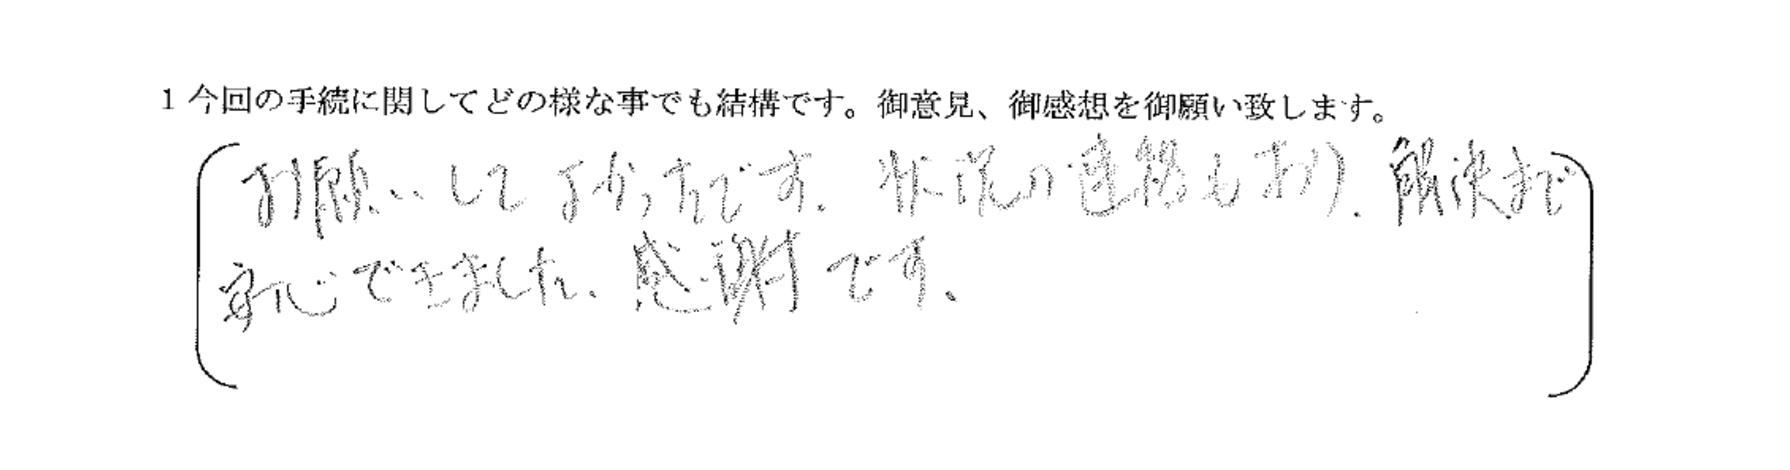 1 今回の手続に関してどの様な事でも結構です。御意見、御感想を御願い致します。
お願いしてよかったです。状況の連絡もあり、解決まで
安心できました。感謝です。